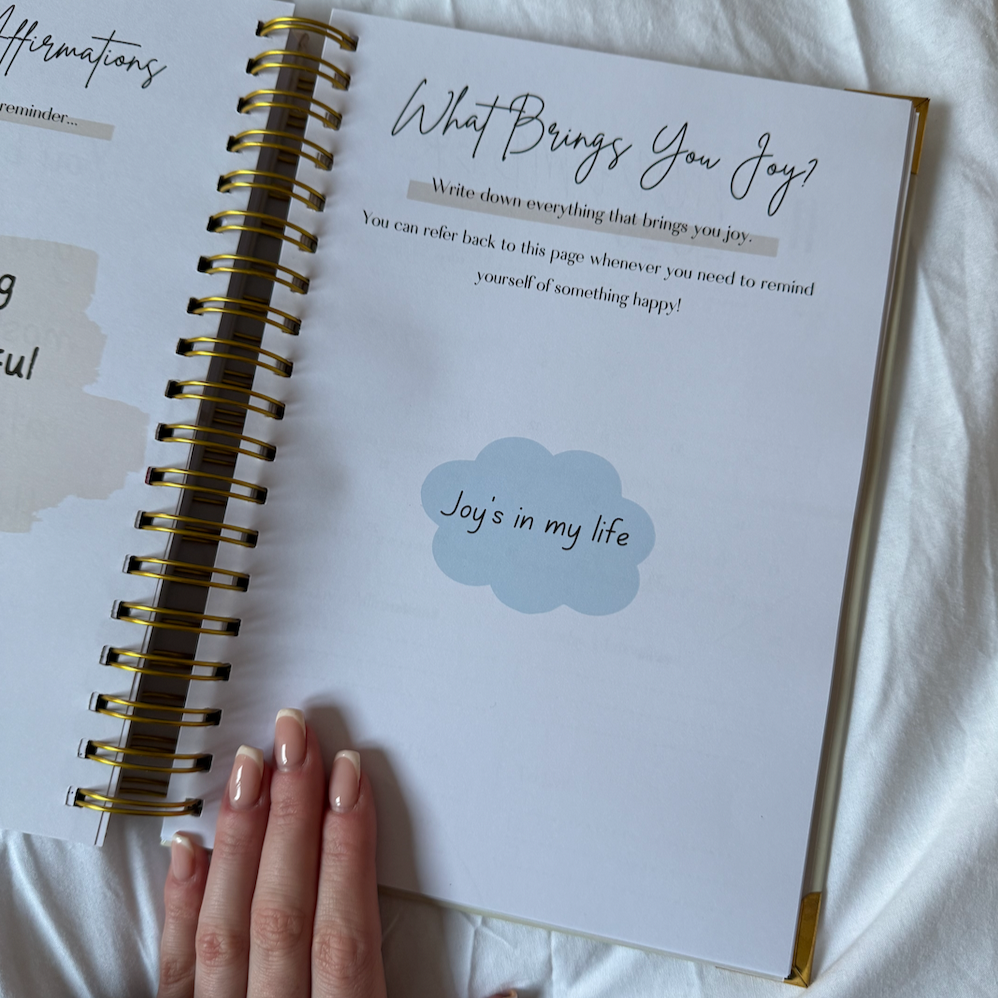 Affirmations
reminder...
What Brings You Joy?
Write down everything that brings you joy.
You can refer back to this page whenever you need to remind
yourself of something happy!
Joy's in my life